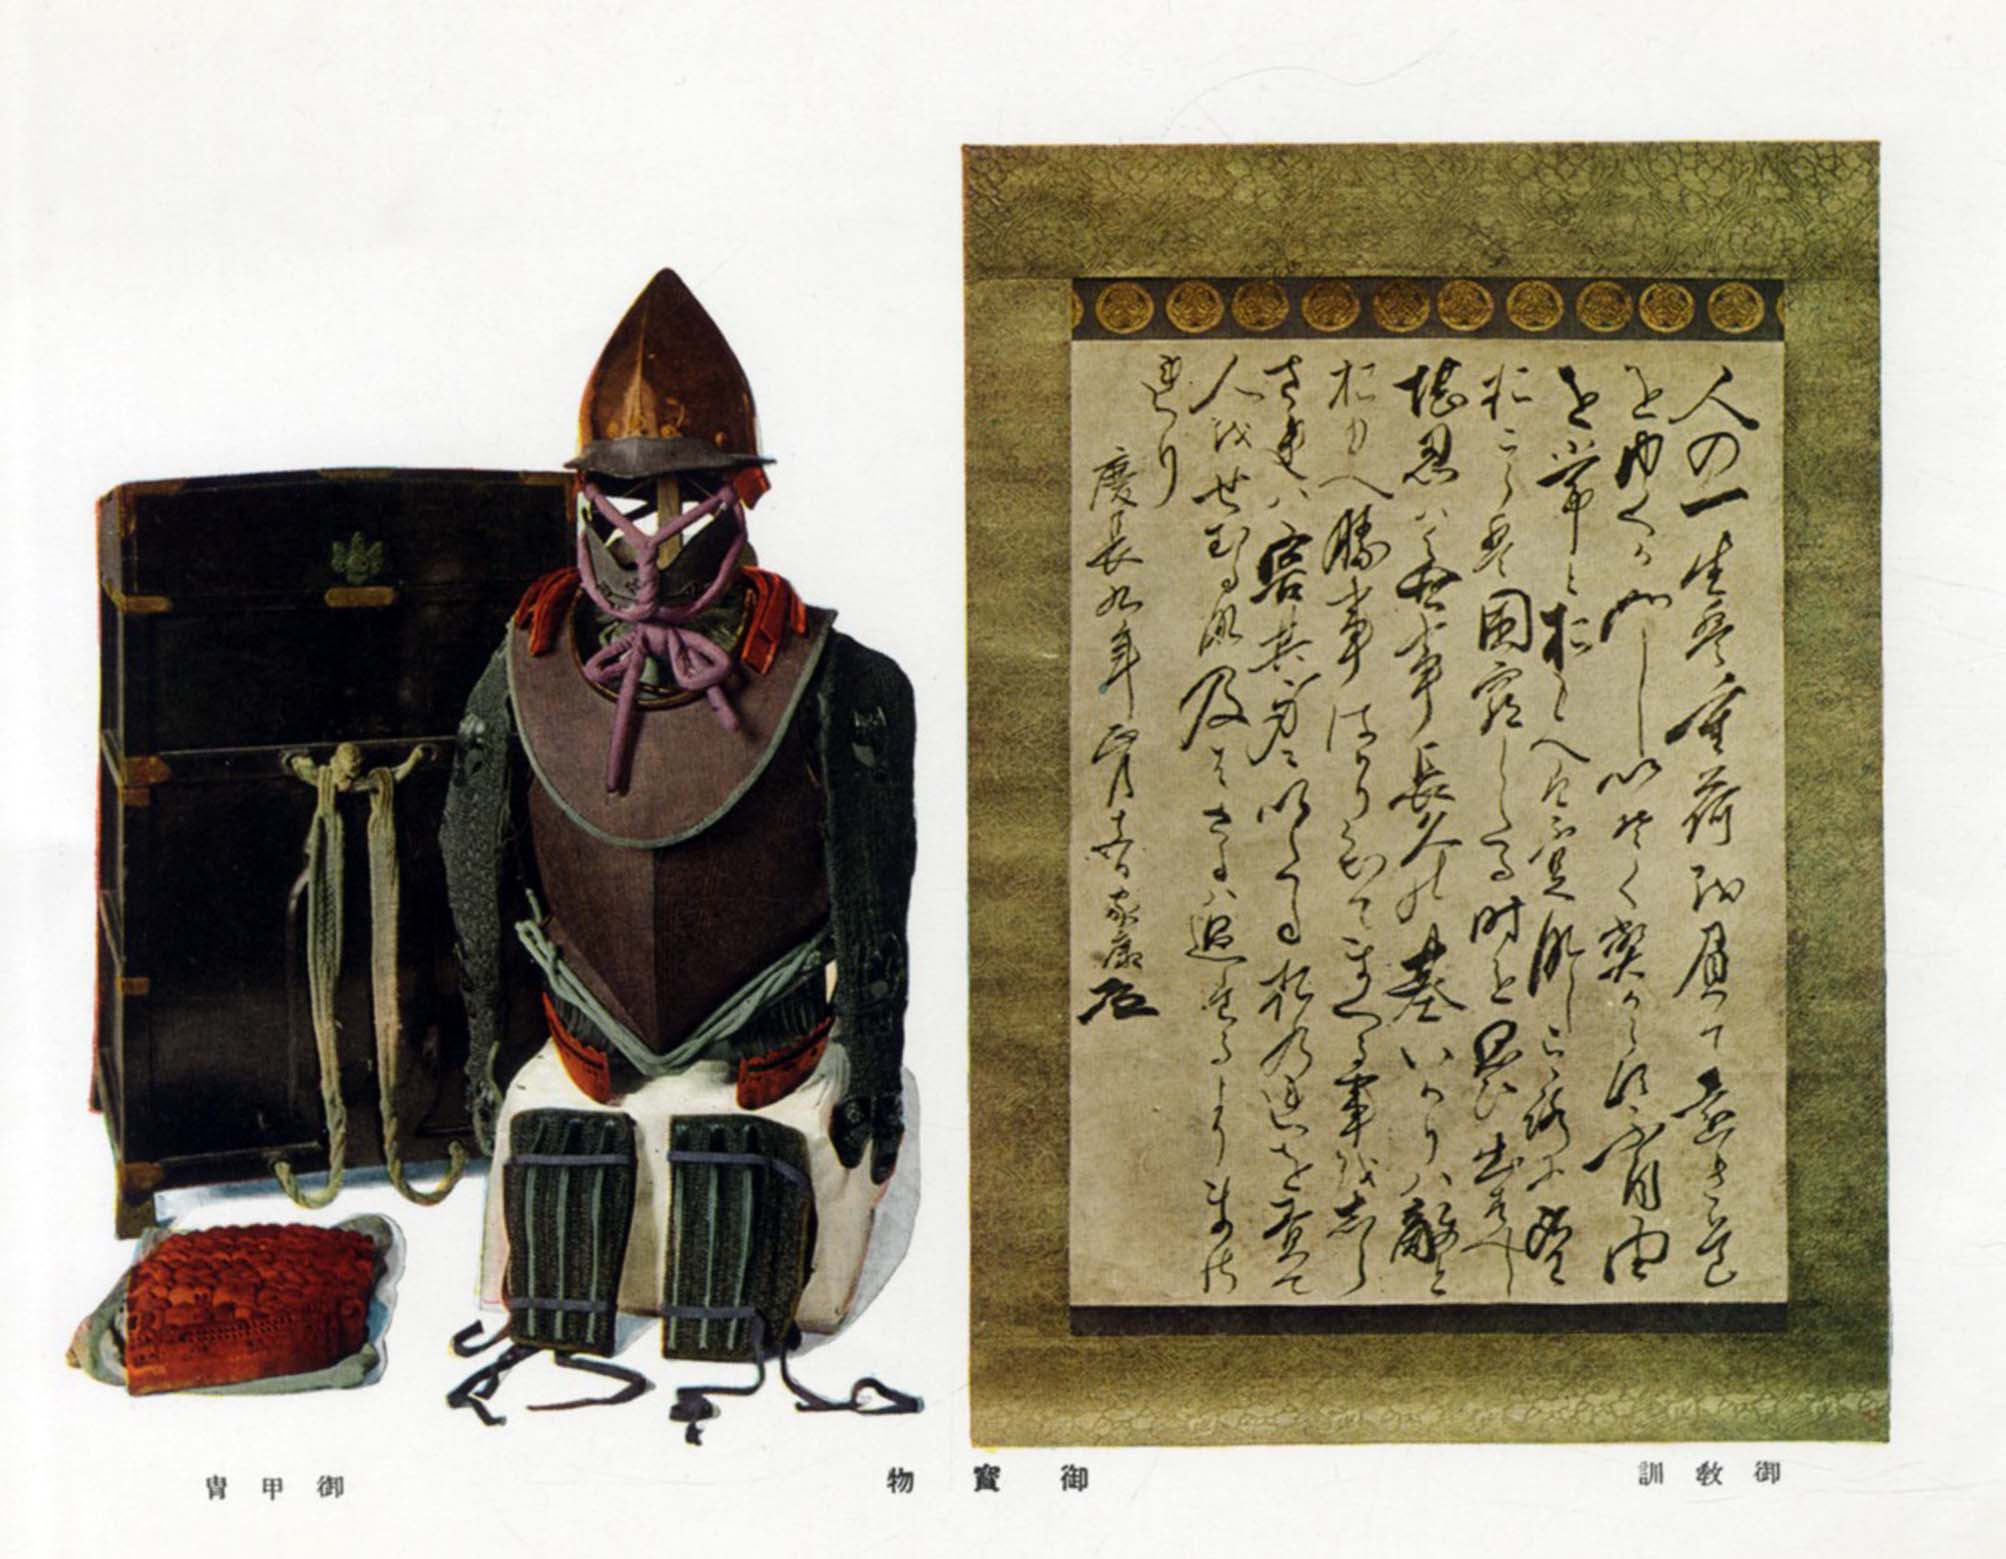 人の一生は重荷を負て遠き道
をゆくか如しいそくへからす不自由
を常とおもへは不足なしこころに望
おこらは困窮したる時を思ひ出すへし
堪忍は無事長久の基いかりは敵と
おもへ勝事はかりを知てまくる事を志ら
されは害其身にいたるおのれを責て
人をせむるな及はさるは過たるよりまさ
れり
慶長九年正月 家康
御教訓
御寶物
御甲冑